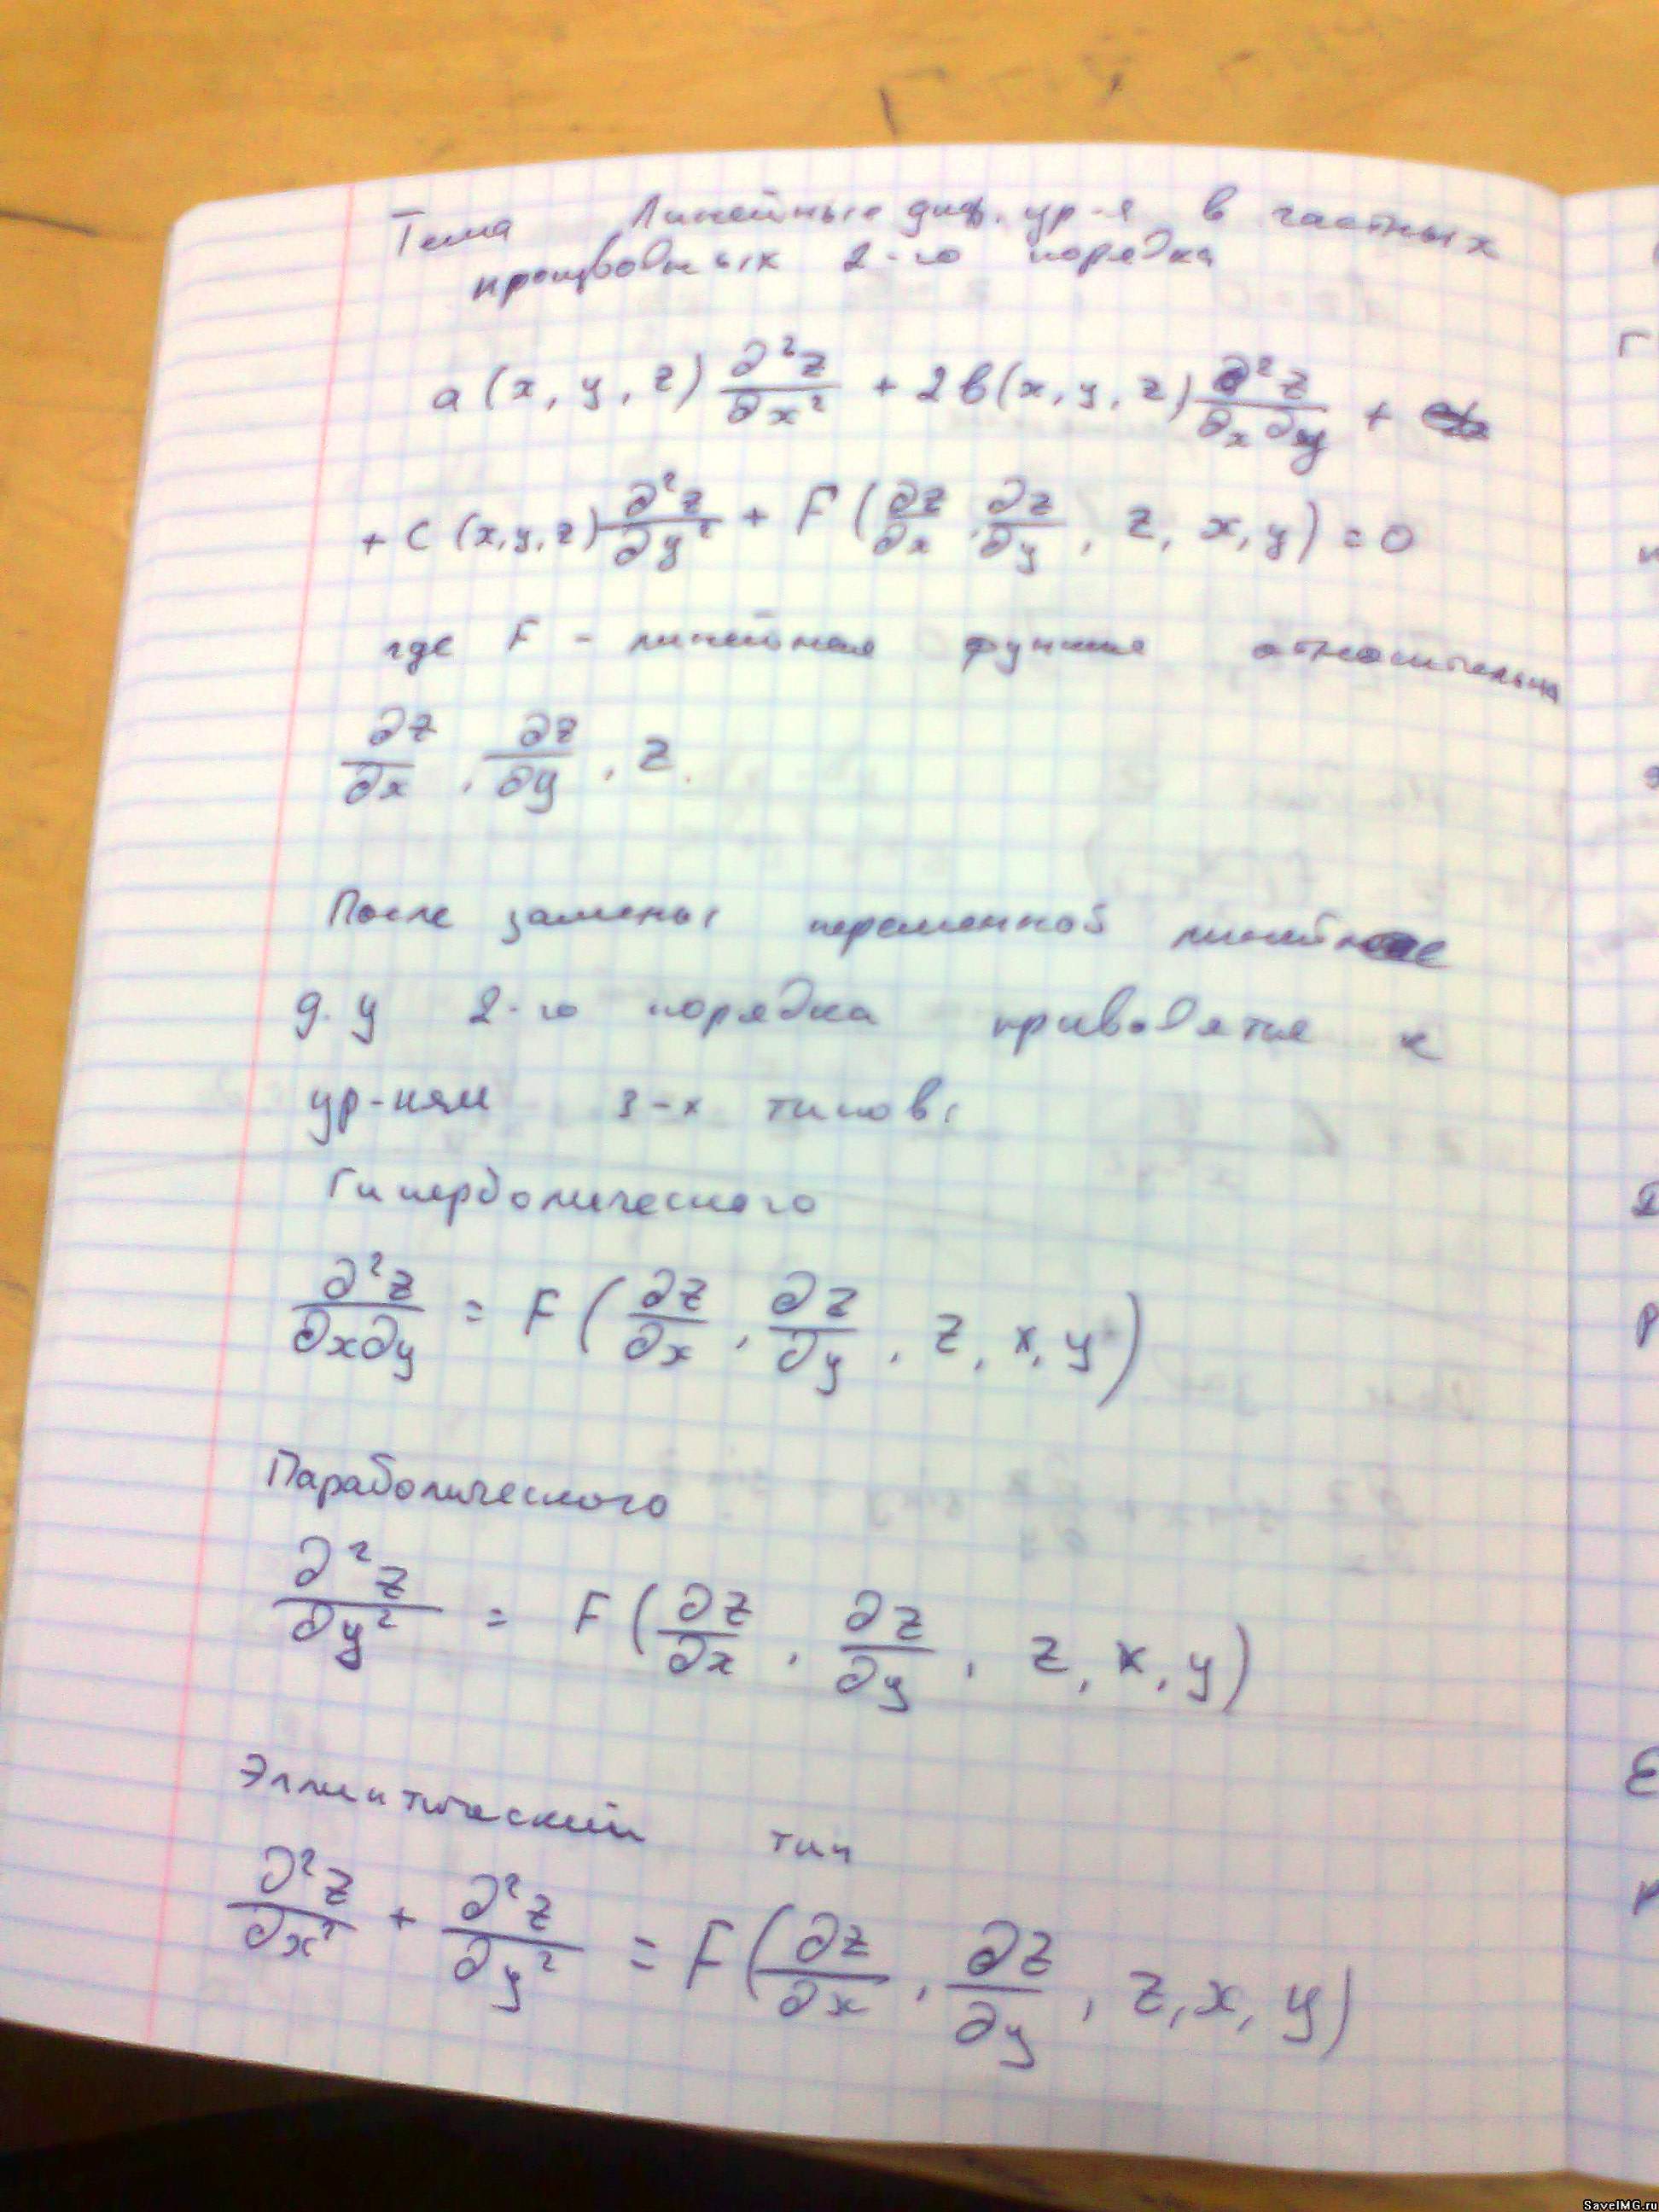 Тема Линейные диф. ур-я в частных
производных 2-го порядка
a(x, y, z) ∂²z/∂x² + 2b(x, y, z) ∂²z/∂x∂y +
+ c(x,y,z) ∂²z/∂y² + F(∂z/∂x, ∂z/∂y, z, x, y) = 0
где F - линейная функция относительно
∂z/∂x, ∂z/∂y, z.
После замены переменной линейные
д.у 2-го порядка приводятся к
ур-ням 3-х типов:
Гиперболического
∂²z/∂x∂y = F(∂z/∂x, ∂z/∂y, z, x, y)
Параболического
∂²z/∂y² = F(∂z/∂x, ∂z/∂y, z, x, y)
Эллиптический тип
∂²z/∂x² + ∂²z/∂y² = F(∂z/∂x, ∂z/∂y, z, x, y)
SaveIMG.ru